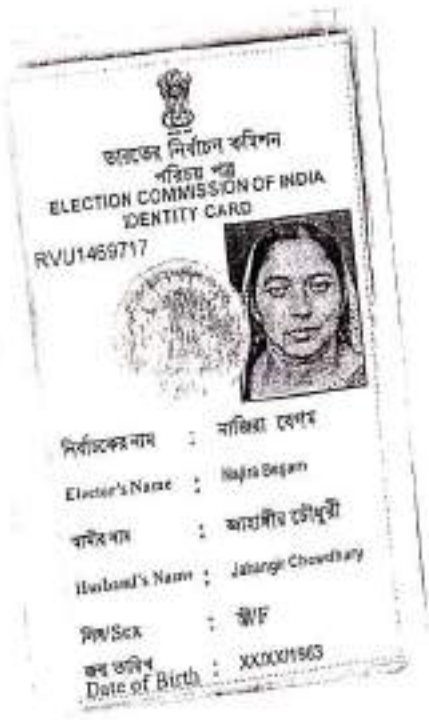 ভারতের নির্বাচন কমিশন
পরিচয় পত্র
ELECTION COMMISSION OF INDIA
IDENTITY CARD
RVU1469717
নির্বাচকের নাম : নাজিরা বেগম
Elector's Name : Najira Begam
স্বামীর নাম : জাহাঙ্গীর চৌধুরী
Husband's Name : Jahangir Chowdhary
লিঙ্গ/Sex : স্ত্রী/F
জন্ম তারিখ
Date of Birth : XX/XX/1963